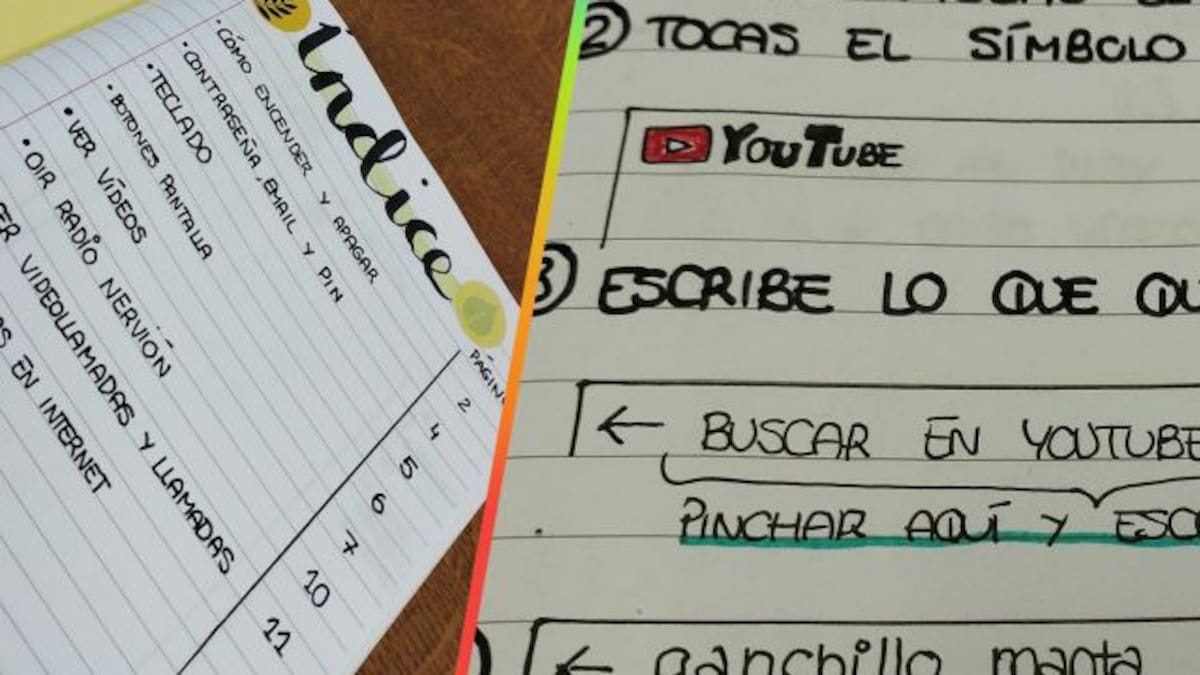 Índice
PÁGIN
• CÓMO ENCENDER Y APAGAR 2
• CONTRASEÑA, EMAIL Y PIN 4
• TECLADO 5
• BOTONES PANTALLA 6
• VER VÍDEOS 7
• OIR RADIO NERVIÓN 10
ER VIDEOLLAMADAS Y LLAMADAS 11
EN INTERNET
② TOCAS EL SÍMBOLO
YOUTUBE
③ ESCRIBE LO QUE QU
← BUSCAR EN YOUTUBE
PINCHAR AQUÍ Y ESC
← ganchillo manta